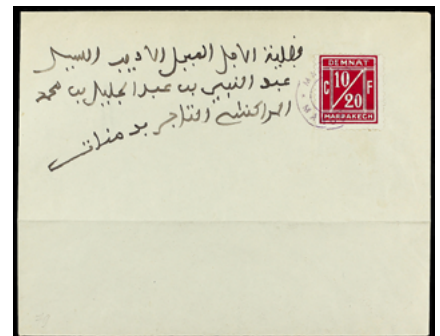 الاجل المبجل الاديب السيد
عبد النبي بن عبد الجليل بن محمد
المراكشي التاجر بدمنات
DEMNAT
C 10/20 F
MARRAKECH